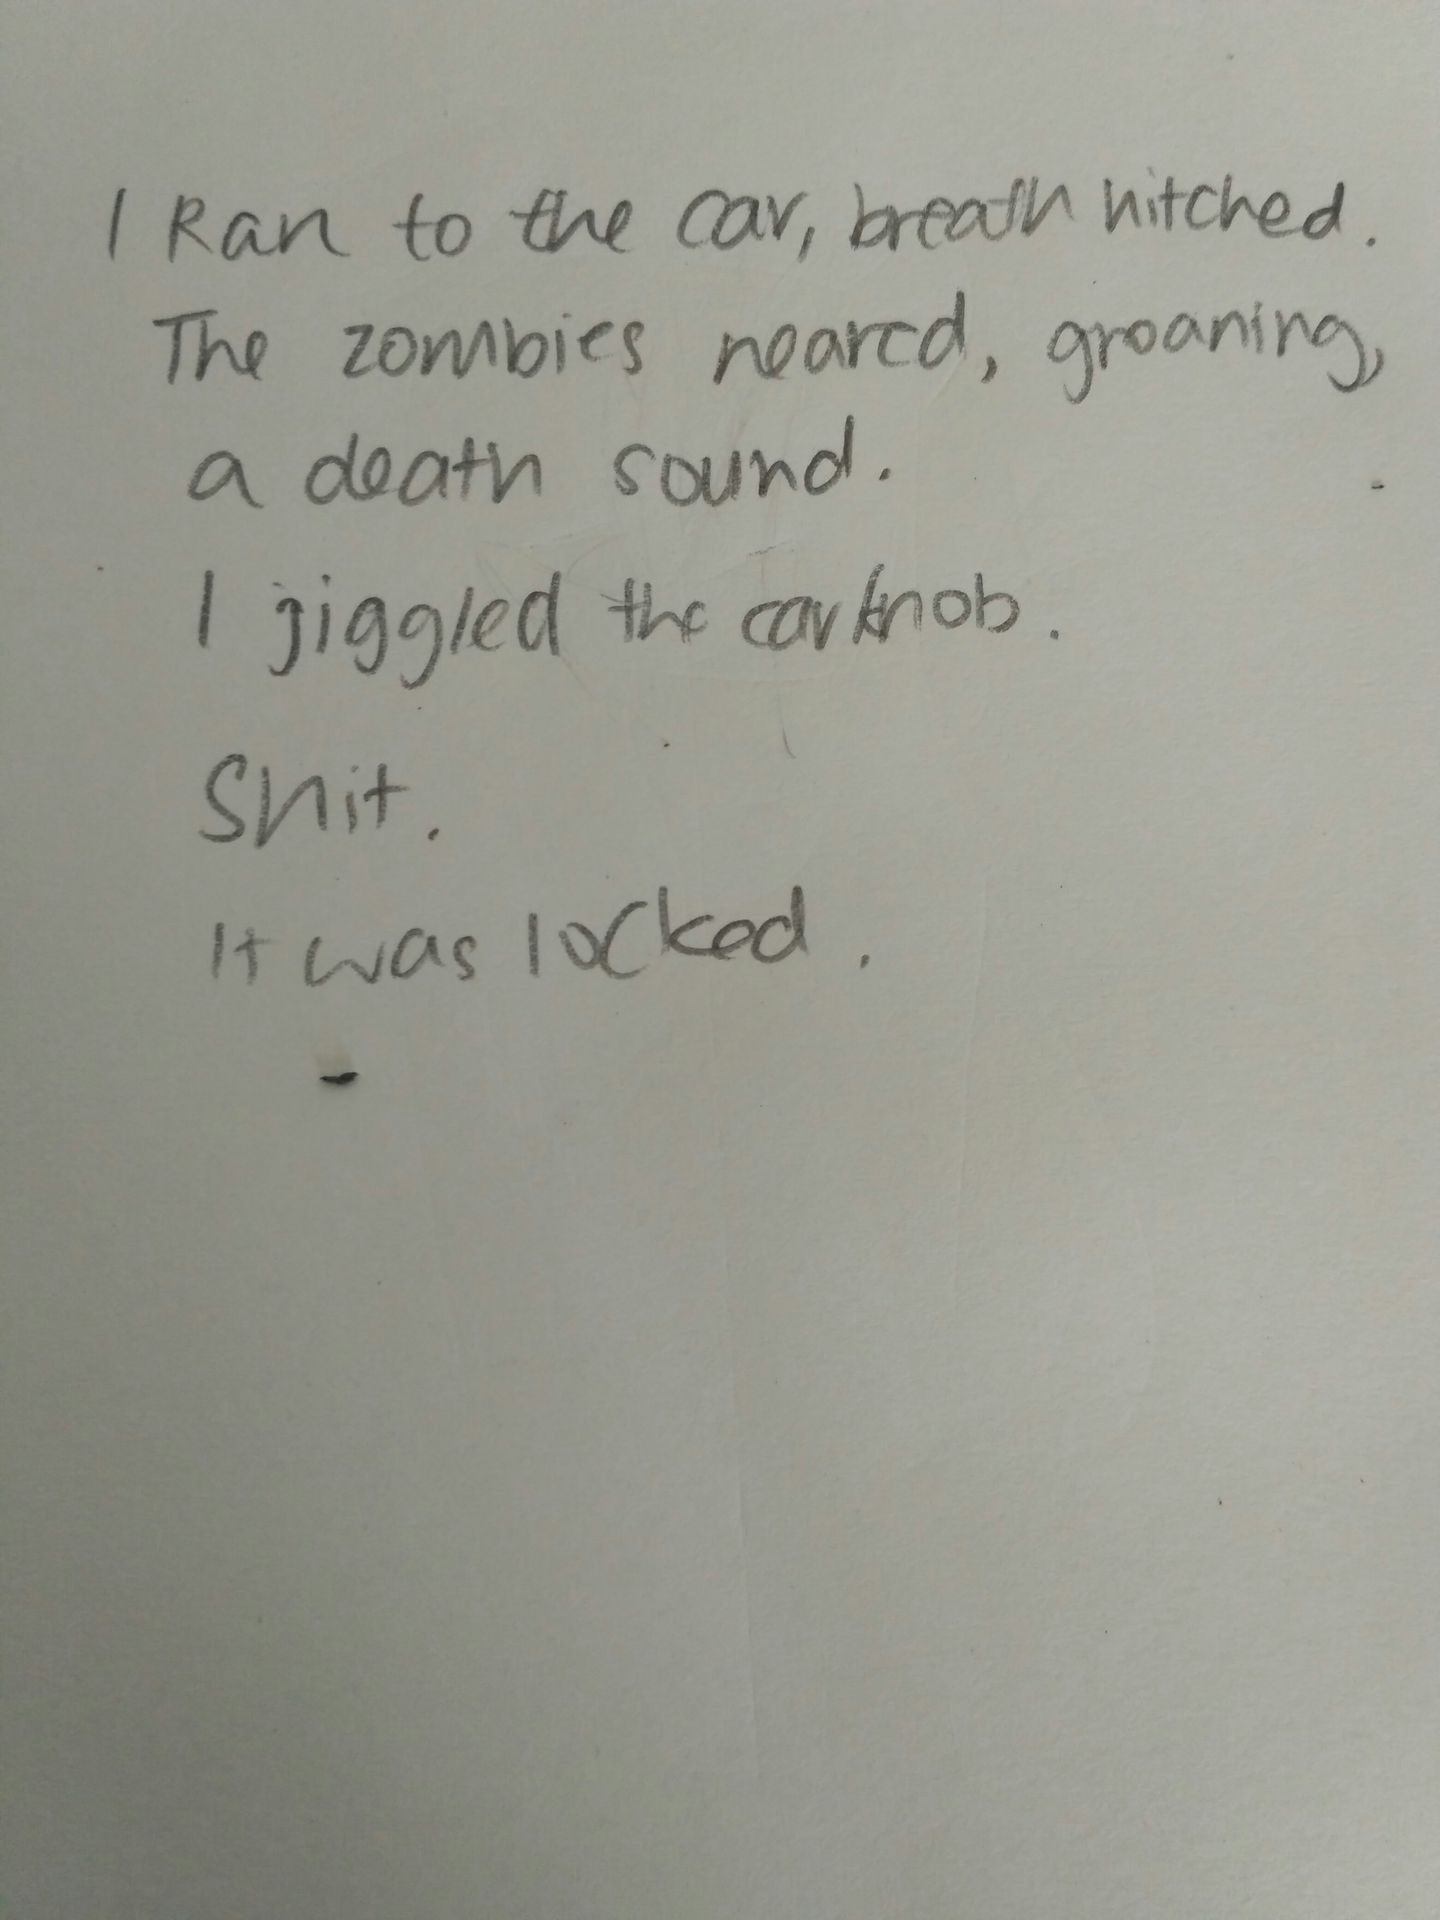 I Ran to the car, breath hitched.
The zombies neared, groaning,
a death sound.
I jiggled the car knob.
Shit.
It was locked.